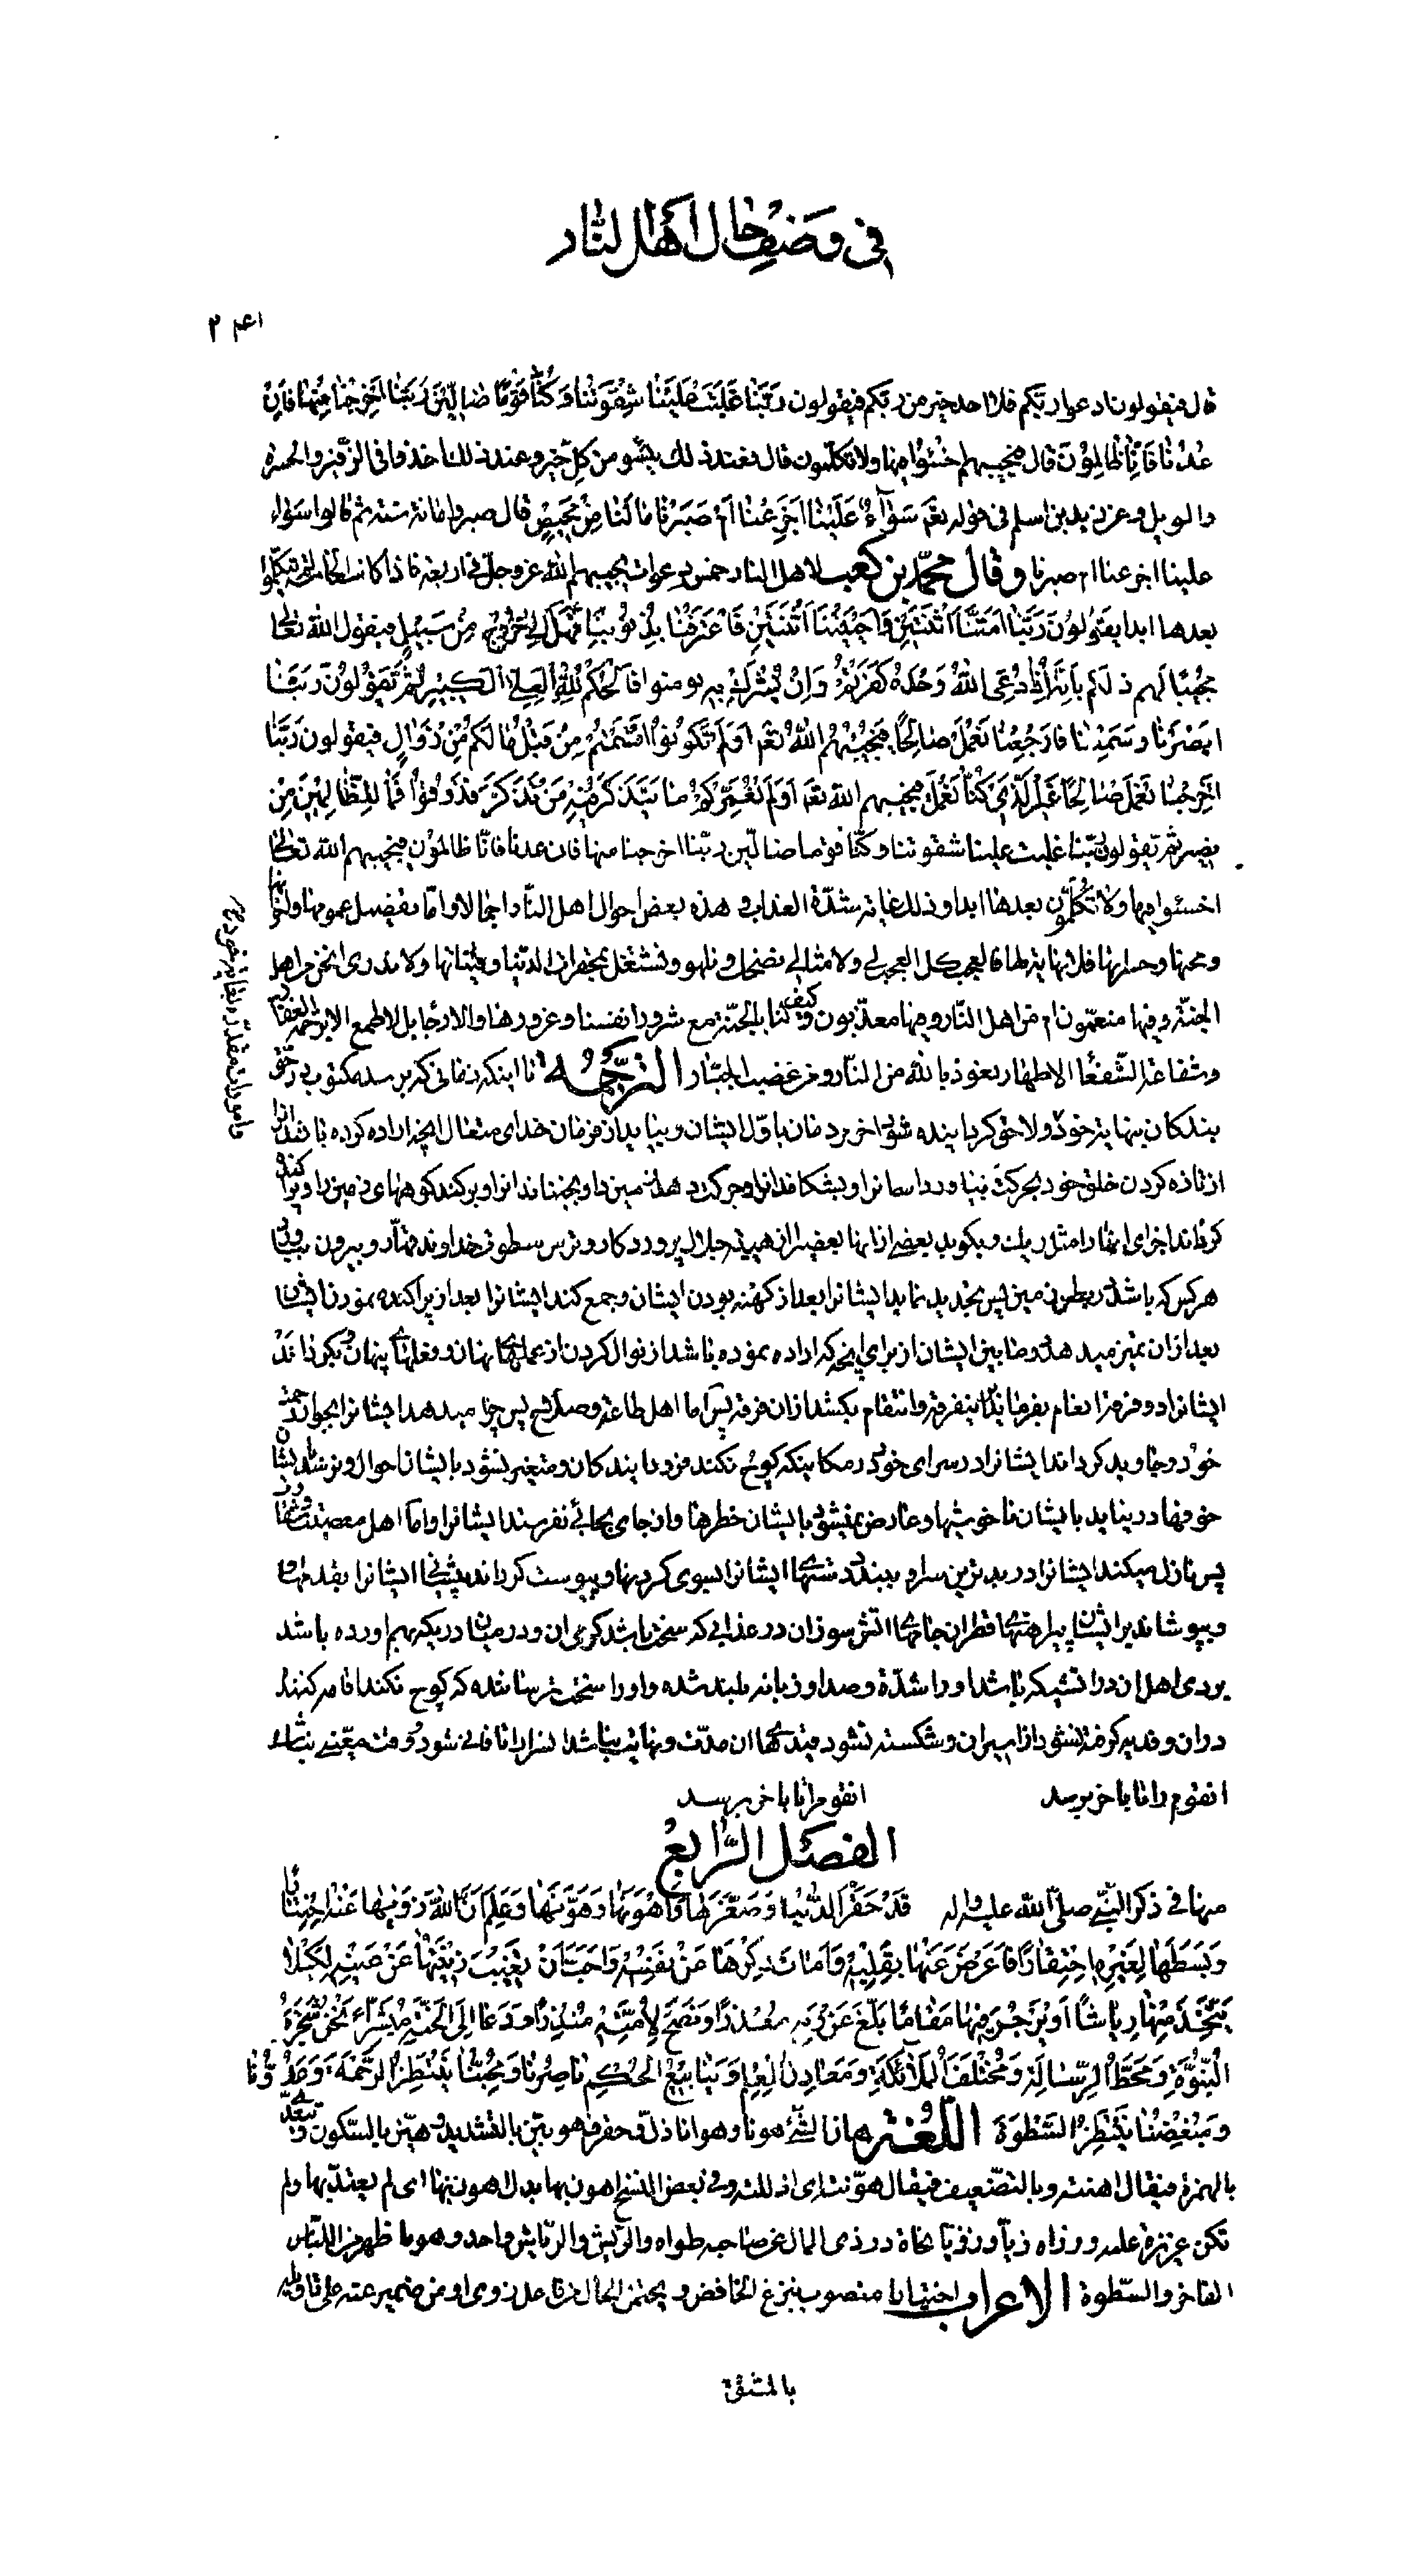 في وصف حال أهل النار
قال فيقولون ادعوا ربكم فلا احد خير من ربكم فيقولون رَبَّنا غَلَبَتْ عَلَيْنا شِقْوَتُنا وَكُنّا قَوْمًا ضالّينَ رَبَّنا اَخْرِجْنا مِنْها فَاِنْ
عُدْنا فَاِنّا ظالِمُونَ قال فيجيبهم اخْسَئُوا فيها ولا تكلّمون قال فعند ذلك يئسوا من كلّ خير وعند ذلك اخذوا في الزّفير والحسرة
والويل وعن زيد بن اسلم في قوله تعم سَوآءٌ عَلَيْنا اَجَزِعْنا اَمْ صَبَرْنا ما لَنا مِنْ مَحيصٍ قال صبروا مائة سنة ثم قالوا سواء
علينا اجزعنا ام صبرنا وقال محمّد بن كعب لاهل النار خمس دعوات يجيبهم الله عزوجلّ في اربعة فاذا كانت الخامسة لم يتكلّموا
بعدها ابدا يقولون رَبَّنا اَمَتَّنَا اثْنَتَيْنِ وَاَحْيَيْتَنَا اثْنَتَيْنِ فَاعْتَرَفْنا بِذُنُوبِنا فَهَلْ اِلى خُرُوجٍ مِنْ سَبيلٍ فيقول الله تعالى
مجيبًا لهم ذلكم بِاَنَّهُ اِذا دُعِيَ اللهُ وَحْدَهُ كَفَرْتُمْ وَاِنْ يُشْرَكْ بِهِ تومنوا فَالْحُكْمُ لِلّهِ الْعَلِيِّ الْكَبيرِ ثُمَّ يَقُولُونَ رَبَّنا
اَبْصَرْنا وسَمِعْنا فَارْجِعْنا نَعْمَلْ صالِحًا فيُجيبُهُمُ اللهُ تعم اَوَلَمْ تَكُونُوا اَقْسَمْتُمْ مِنْ قَبْلُ ما لَكُمْ مِنْ زَوالٍ فيقولون رَبَّنا
اَخْرِجْنا نَعْمَلْ صالِحًا غَيْرَ الَّذي كُنّا نَعْمَلُ فيجيبهم الله تعم اَوَلَمْ نُعَمِّرْكُمْ ما يَتَذَكَّرُ فيهِ مَنْ تَذَكَّرَ فَذُوقُوا فَما لِلظّالِمينَ مِنْ
نصير ثم يقولون ربّنا غلبت علينا شقوتنا وكنّا قوما ضالّين ربّنا اخرجنا منها فان عدنا فانّا ظالمون فيجيبهم الله تعالى
اخسئوا فيها ولا تُكلّمون بعدها ابدا وذلك غاية شدّة العذاب هذه بعض احوال اهل النّار اجمالا وامّا تفصيل غمومها واحزانها
ومحنها وحسراتها فلا نهاية لها فالعجب كل العجب لي ولامثالي نضحك ونلهو ونشتغل بمحقرات الدّنيا وقنياتها ولا ندرى انحن من اهل
الجنّة وفيها منعمون ام من اهل النّار وفيها معذّبون وكيف لنا بالجنّة مع شرور انفسنا وغرورها والارجا بل لاطمع الا برحمة الغفّار
وشفاعة الشّفعآ الاطهار نعوذ بالله من النار ومن غضب الجبّار الترجمة تا اينكه زمانى كه برسد مكتوب در حق
بندكان بنهايت خود ولاحق كرداينده شود اخر مردمان باوّل ايشان وبيايد از فرمان خداى متعال انچه اراده كرده باشد انرا
از تازه كردن خلق خود بحركت بياورد اسمانرا وبشكافد انرا وحركت دهد زمين را وبجنباند انرا وبركند كوههاى زمين را وپراكنده
كرداند اجزاى انها را مثل ريك وبكوبد بعضى از انها بعضى را از هيبت جلال پروردكار وترس سطوت خداوند قهّار وبيرون بياورد
هر كس كه باشد در بطون زمين پس تجديد نمايد ايشانرا بعد از كهنه بودن ايشان وجمع كند ايشانرا بعد از پراكنده نمودن ايشان
بعد از ان تميز ميدهد ما بين ايشان از براى انچه كه اراده نموده باشد از سؤال كردن از عملهاى نهان وفعلهاى پنهان بگرداند
ايشانرا دو فرقه انعام بفرمايد باين فرقه وانتقام بكشد از ان فرقه پس اما اهل طاعت وصلاح پس جزا ميدهد ايشانرا بجوار رحمت
خود وجاويد كرداند ايشانرا در سراى خود در مكانيكه كوچ نكند فرود ايندكان ومتغير نشود بايشان احوال ونرساند ايشان
خوفها در نيايد بايشان ناخوشيها وعارض نميشود بايشان خطرها واز جاى بجائى نفرستد ايشانرا واما اهل معصيت وشقاوت
پس نازل ميكند ايشانرا در بدترين سرا وببندد دستهاى ايشانرا بسوى كردنها وپيوست كرداند پيشانيهاى ايشانرا بقدمها
وبپوشاند بر ايشان پيراهنهاى قطران جامهاى اتش سوزان در عذابى كه سخت باشد كرمى ان ودر ميان در يكه بهم اورده باشد
بروى اهل ان در اتشيكه باشد او را شدّة وصدا وزبانه بلند شده واواز سخت ترساننده كه كوچ نكند اقامه كننده
در ان وفديه كرفته نشود از اسيران وشكسته نشود قيدهاى ان مدّت ونهايت نباشد انسرا را تا فانى شود وقت معيّنى نباشد
انقوم را تا باخر برسد انقوم را تا باخر برسد
الفصل الرّابع
منها في ذكر النّبي صلّى الله عليه واله قَدْ حَقَّرَ الدُّنْيا وَصَغَّرَها وَاَهْوَنَها وَهَوَّنَها وَعَلِمَ اَنَّ اللهَ زَواها عَنْهُ اخْتِيارًا
وَبَسَطَها لِغَيْرِهِ احْتِقارًا فَاَعْرَضَ عَنْها بِقَلْبِهِ وَاَماتَ ذِكْرَها عَنْ نَفْسِهِ وَاَحَبَّ اَنْ تَغيبَ زينَتُها عَنْ عَيْنِهِ لِكَيْلا
يَتَّخِذَ مِنْها رِياشًا اَوْ يَرْجُوَ فيها مَقامًا بَلَّغَ عَنْ رَبِّهِ مُعْذِرًا وَنَصَحَ لِاُمَّتِهِ مُنْذِرًا وَدَعا اِلَى الْجَنَّةِ مُبَشِّرًا نَحْنُ شَجَرَةُ
النُّبُوَّةِ وَمَحَطُّ الرِّسالَةِ وَمُخْتَلَفُ الْمَلآئِكَةِ وَمَعادِنُ الْعِلْمِ وَيَنابيعُ الْحُكْمِ ناصِرُنا وَمُحِبُّنا يَنْتَظِرُ الرَّحْمَةَ وَعَدُوُّنا
وَمُبْغِضُنا يَنْتَظِرُ السَّطْوَةَ اللّغة هان الشّئ هونا وهوانا ذلّ وحقر فهو هيّن بالتشديد وهين بالسّكون ويتعدّى
بالهمزة فيقال اهنته وبالتضعيف فيقال هوّنته اى اذللته وفى بعض النسخ اهون بها بدل اهونها اى لم يعتدّ بها ولم
تكن عزيزة عليه وزواه زيّا وزويّا نحّاه وزوى المال عن صاحبه طواه والرّيش والرّياش واحد وهو ما ظهر من اللباس
الفاخر والسّطوة الاعراب اختيارا منصوب بنزع الخافض ويحتمل الحال من فاعل زوى او من ضمير عنه
بالمشقة